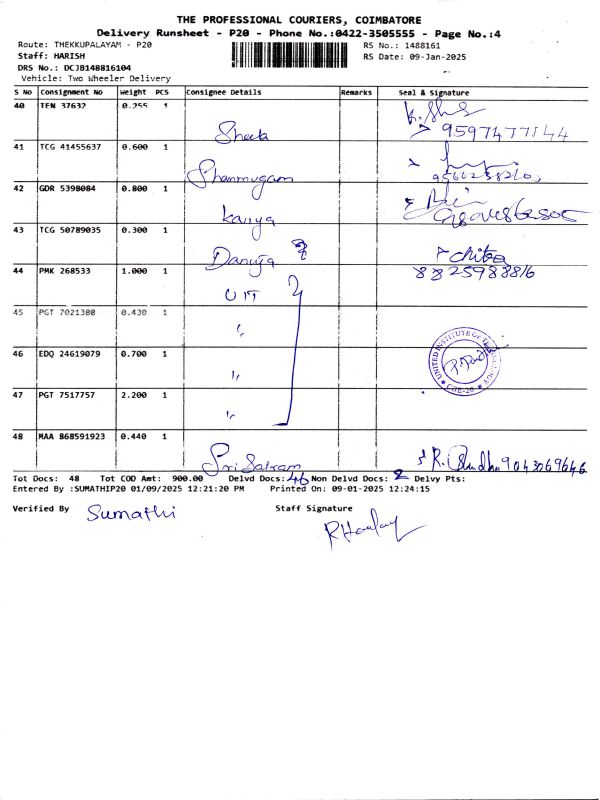 THE PROFESSIONAL COURIERS, COIMBATORE
Delivery Runsheet - P20 - Phone No.:0422-3505555 - Page No.:4
Route: THEKKUPALAYAM - P20 RS No.: 1488161
Staff: HARISH RS Date: 09-Jan-2025
DRS No.: DCJB148816104
Vehicle: Two Wheeler Delivery
S No Consignment No Weight PCS Consignee Details Remarks Seal & Signature
40 TEN 37632 0.255 1
Sheela 9597477144
41 TCG 41455637 0.600 1
Shanmugam
42 GDR 5398084 0.800 1
Kaniya
43 TCG 50789035 0.300 1
Danuja chitra
44 PMK 268533 1.000 1 8825988816
UIT
45 PGT 7021388 0.430 1
"
46 EDQ 24619079 0.700 1 UNITED INSTITUTE OF TECHNOLOGY CBE-20
"
47 PGT 7517757 2.200 1
"
48 MAA 868591923 0.440 1
Sri Sairam 9043069646
Tot Docs: 48 Tot COD Amt: 900.00 Delvd Docs: 46 Non Delvd Docs: 2 Delvy Pts:
Entered By :SUMATHIP20 01/09/2025 12:21:20 PM Printed On: 09-01-2025 12:24:15
Verified By Sumathi Staff Signature